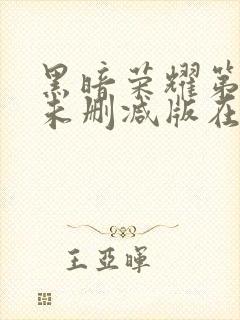 黑暗荣耀第
未删减版在
王亚晖